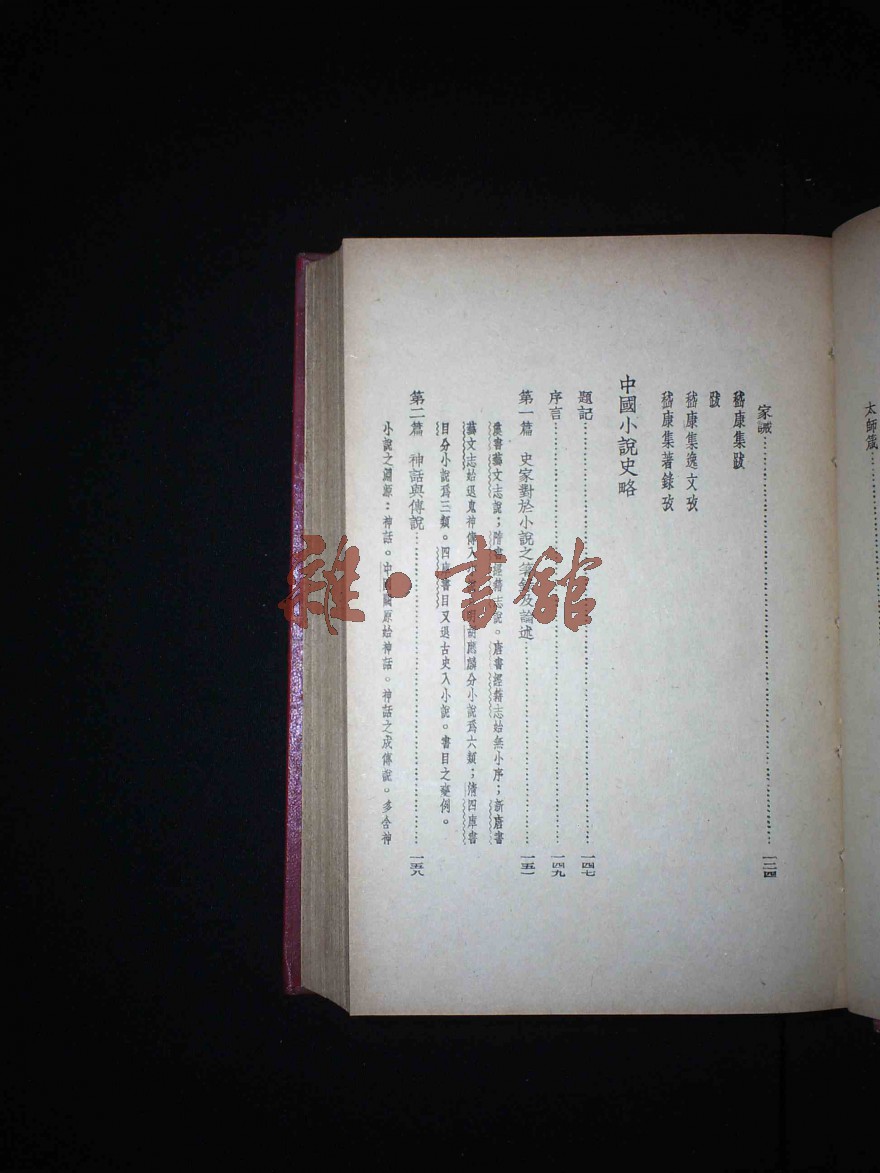 太師箴
家誡……一二四
嵇康集跋
跋
嵇康集逸文攷
嵇康集著錄攷
中國小說史略
題記……一四七
序言……一四九
第一篇 史家對於小說之著錄及論述……一五一
漢書藝文志說；隋書經籍志說。唐書經籍志始無小序；新唐書
藝文志始退鬼神傳入小說。明胡應麟分小說爲六類；清四庫書
目分小說爲三類。四庫書目又退古史入小說。書目之變例。
第二篇 神話與傳說……一五八
小說之淵源：神話。中國闕原始神話。神話之成傳說。多含神
雜·書館